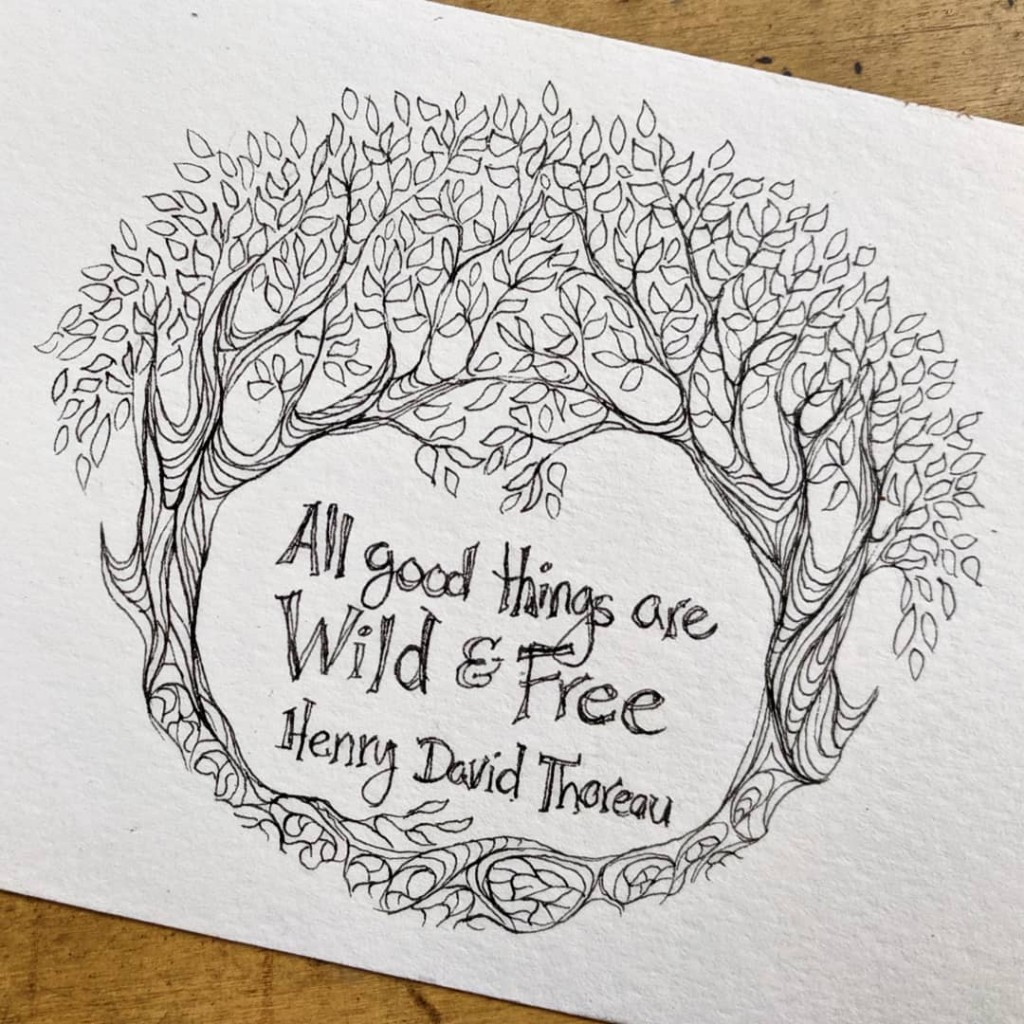 All good things are
Wild & Free
Henry David Thoreau